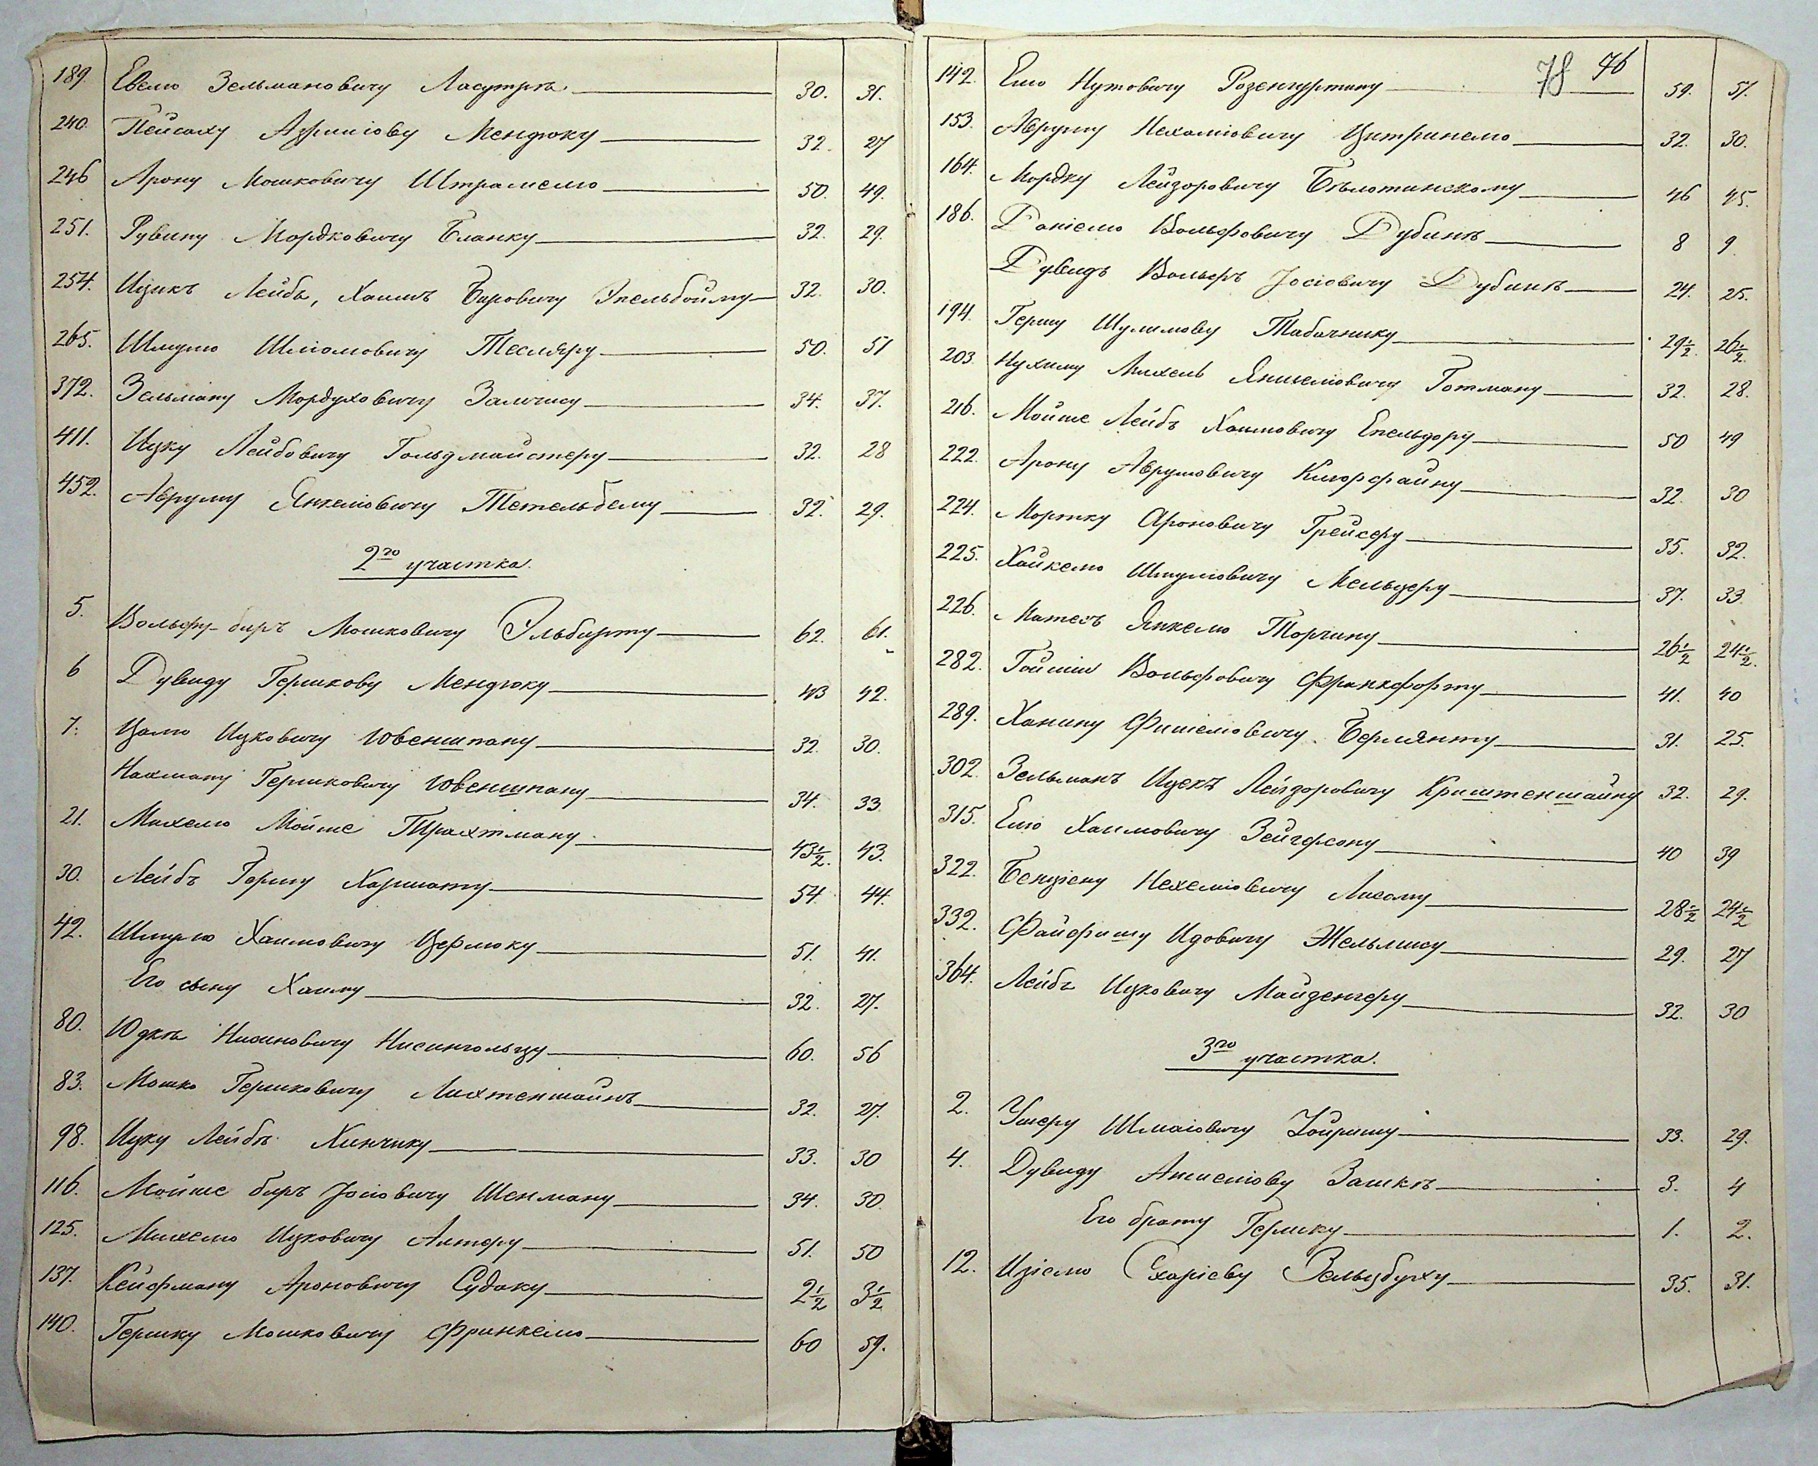 189. Евелю Зельмановичу Ластутръ 30. 31.
240. Пейсаху Азрилiову Мендюку 32. 27
246 Арону Мошковичу Штрамелю 50. 49.
251. Рувину Мордковичу Бланку 32. 29.
254. Ицикъ Лейбъ, Хаимъ Беровичу Эпельбойму 32. 30.
265. Шмулю Шлiомовичу Тесляру 50. 51
372. Зельману Мордуховичу 34. 37.
411. Ицку Лейбовичу Гольдмайстеру 32. 28
452. Авруму Янкелiовичу Тетельбему 32. 29.
2го участка.
5. Вольфу-беръ Мошковичу Эльберту 62. 61.
6 Дувиду Гершкову Мендюку 43 42.
7. Цалю Ицковичу Ювеншпану 32. 30.
Нахману Гершковичу Ювеншпану 34. 33
21. Михелю Мойше Трахтману 43½. 43.
30. Лейбъ Гершу 54. 44.
42. Шмулю Хаимовичу Церлюку 51. 41.
Его сыну Хаиму 32. 27.
80. Юдкѣ Нисиновичу Нисингольцу 60. 56
83. Мошко Гершковичу Лихтенштайнъ 32. 27.
98. Ицку Лейбѣ Хинчику 33. 30
116. Мойше беръ Іосiовичу Шенману 34. 30.
125. Михелю Ицковичу Алтеру 51. 50
137. Кейфману Ароновичу Судаку 2½ 3½
140. Гершку Мошковичу Френкелю 60 59.
78 76
142. Елю Нутовичу Розенгуртину 59. 57.
153. Авруму Нехемiовичу Цитринелю 32. 30.
164. Мордку Лейзоровичу Бѣлотинскому 46 45.
186. Данiелю Вольфовичу Дубинѣ 8 9.
Дувидъ Вольфъ Іосiовичу Дубинѣ 24. 25.
194. Гершу Шулимову Табачнику 29½. 26½.
203. Нухиму Михель Янкелiовичу Готману 32. 28.
216. Мойше Лейбъ Хаимовичу Епельдору 50 49
222. Арону Аврумовичу Клорфайну 32. 30
224. Мортку Ароновичу Грейсеру 35. 32.
225. Хайкелю Шмулiовичу Мельцеру 37. 33.
226. Матесъ Янкелю Торчину 26½ 24½.
282. Вольфовичу Франкфорту 41. 40
289. Ханину Фишелiовичу Берлянту 31. 25.
302. Зельманъ Ицекъ Лейзоровичу Криштенштайну 32. 29.
315. Елю Хаимовичу Зейгерсону 40 39
322. Бенцiону Нехемiовичу Лисому 28½ 24½
332. Файфишу Идовичу 29. 27
364. Лейбъ Ицковичу Майзенгеру 32. 30
3го участка.
2. Ушеру Шмаiовичу 33. 29.
4. Дувиду Аншелiову Зашкѣ 3. 4
Его брату Гершку 1. 2.
12. Ицiелю Схарiеву Зельцбуху 35. 31.